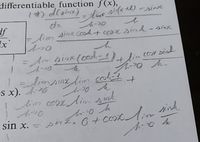 differentiable function f(x),
(#) d(sinx)/dx = lim h→0 sin(x+h) - sinx / h
df
dx
= lim h→0 sinx cosh + cosx sinh - sinx / h
= lim h→0 sinx (cosh-1) / h + lim h→0 cosx sinh / h
s x). = lim h→0 sinx lim h→0 cosh-1 / h +
lim h→0 cosx lim h→0 sinh / h
sin x. = sinx · 0 + cosx lim h→0 sinh / h